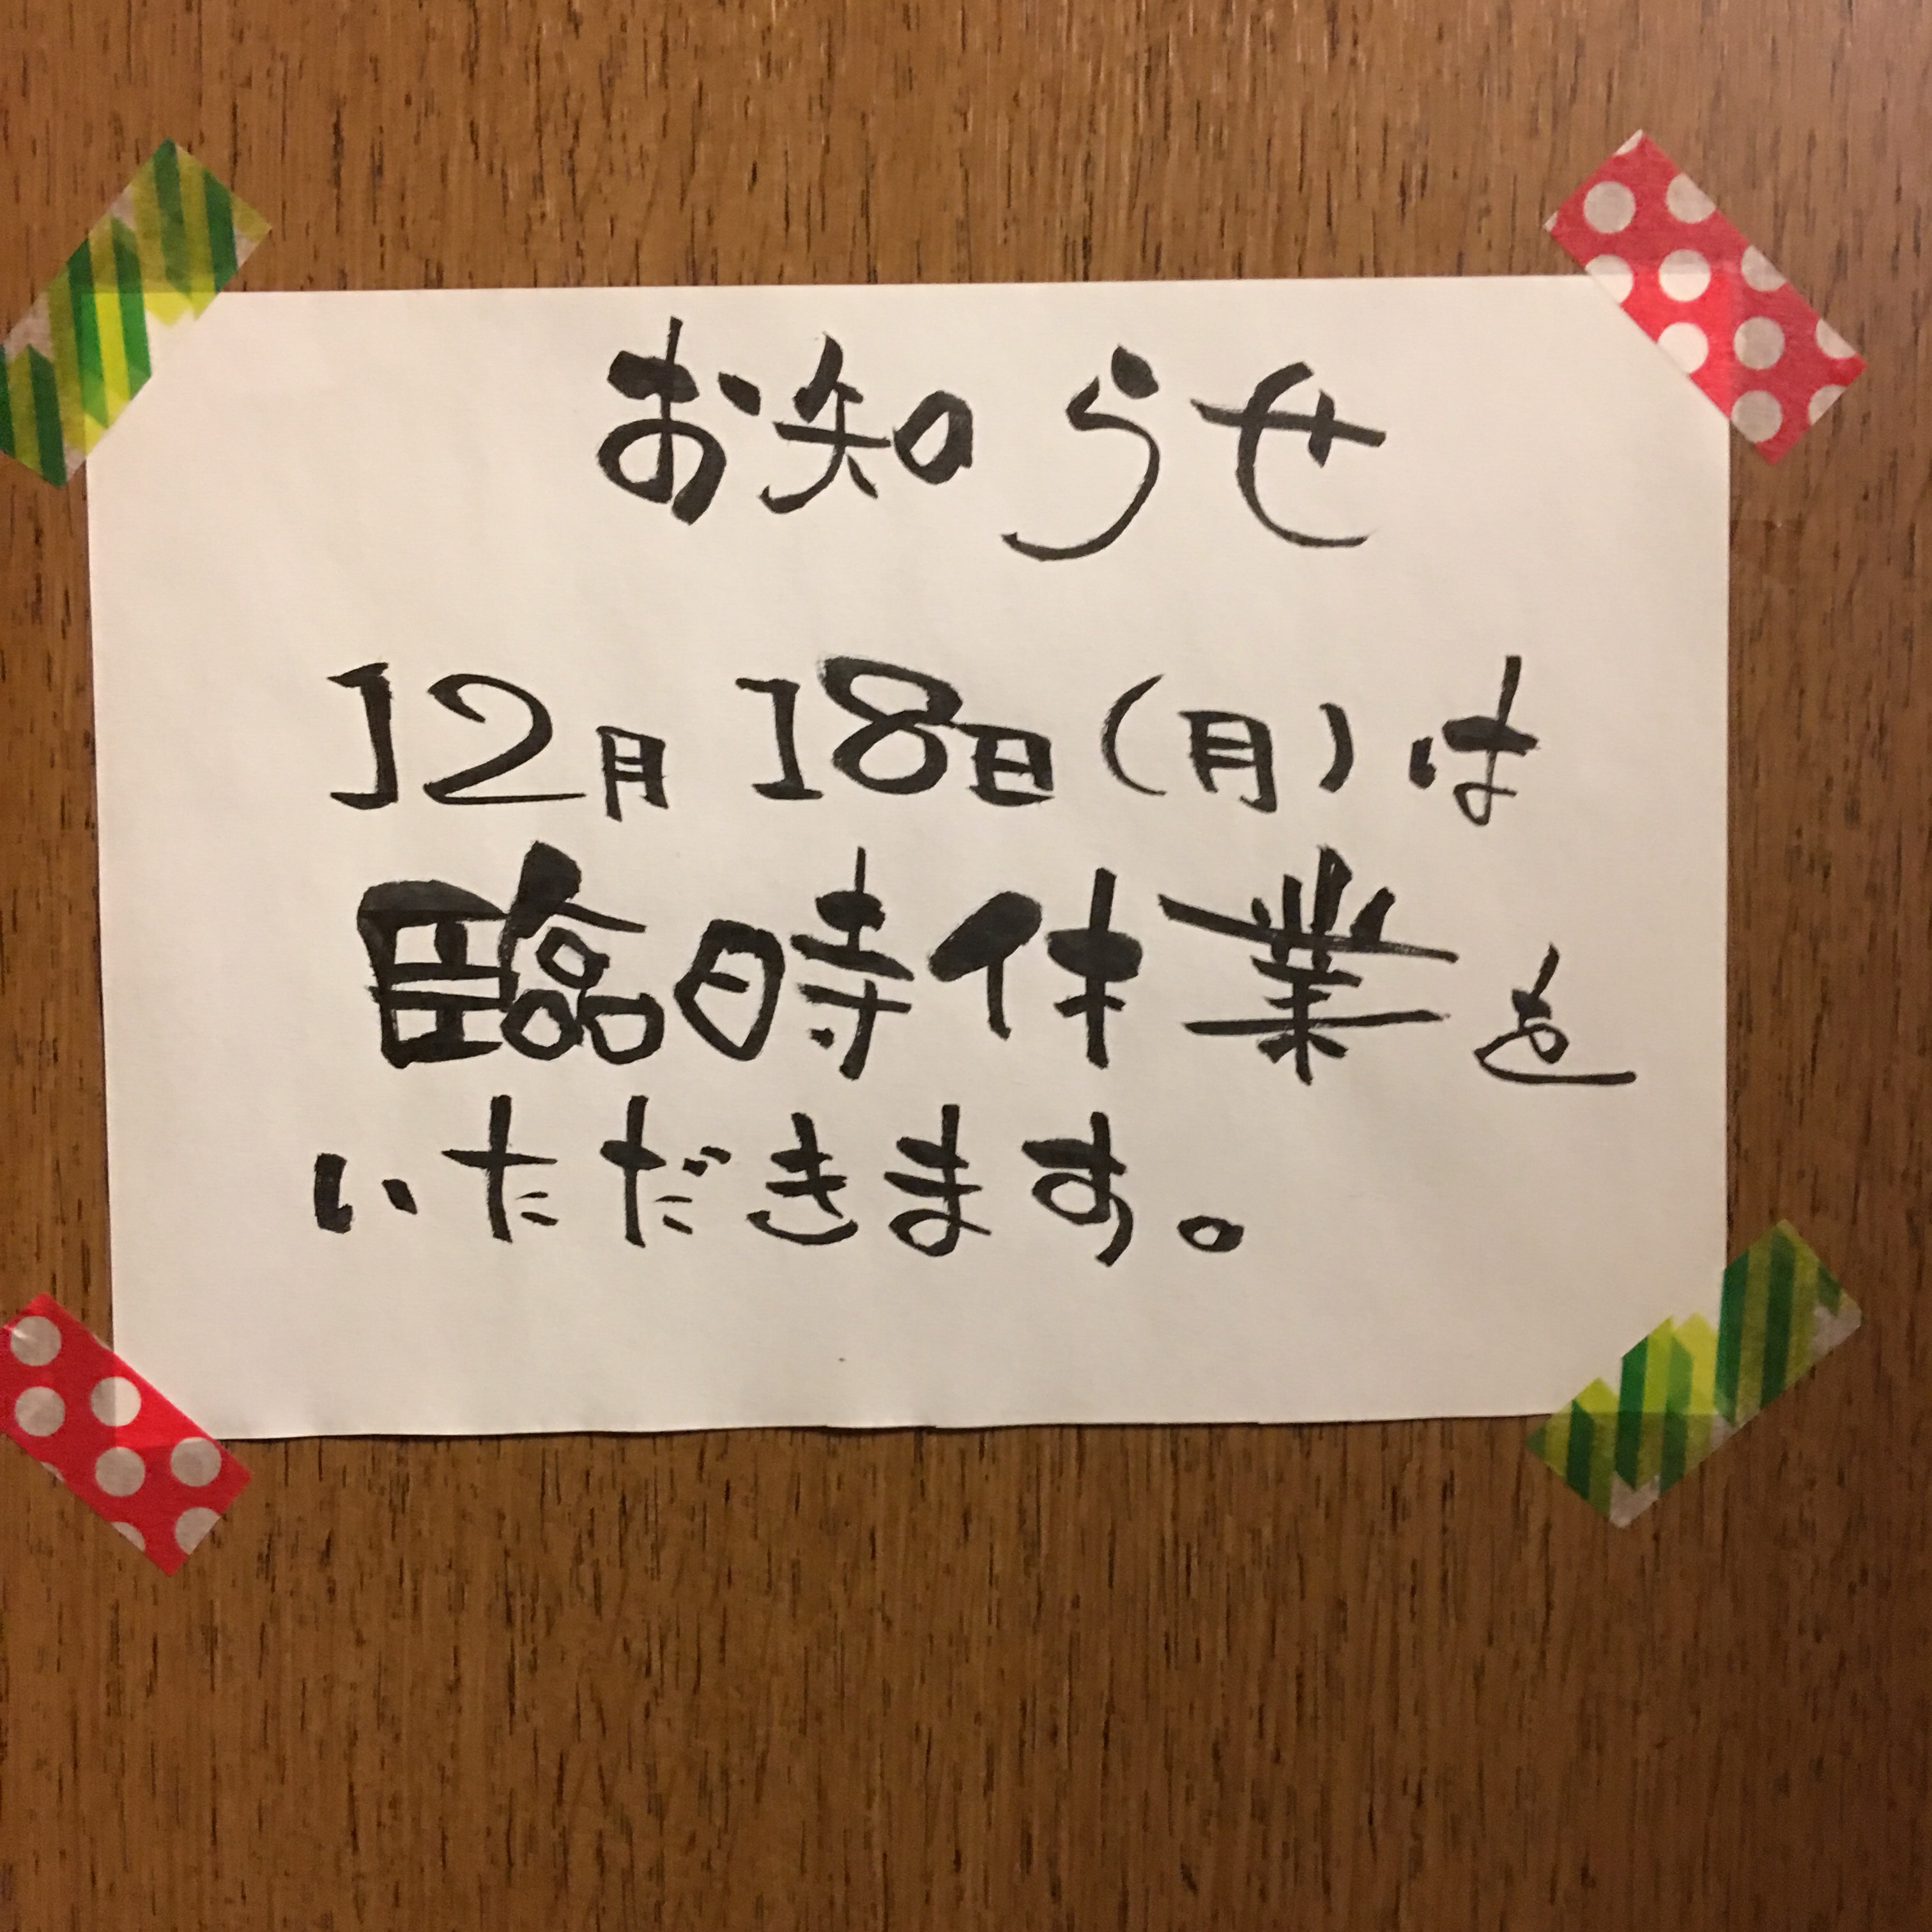 お知らせ
12月18日(月)は
臨時休業を
いただきます。